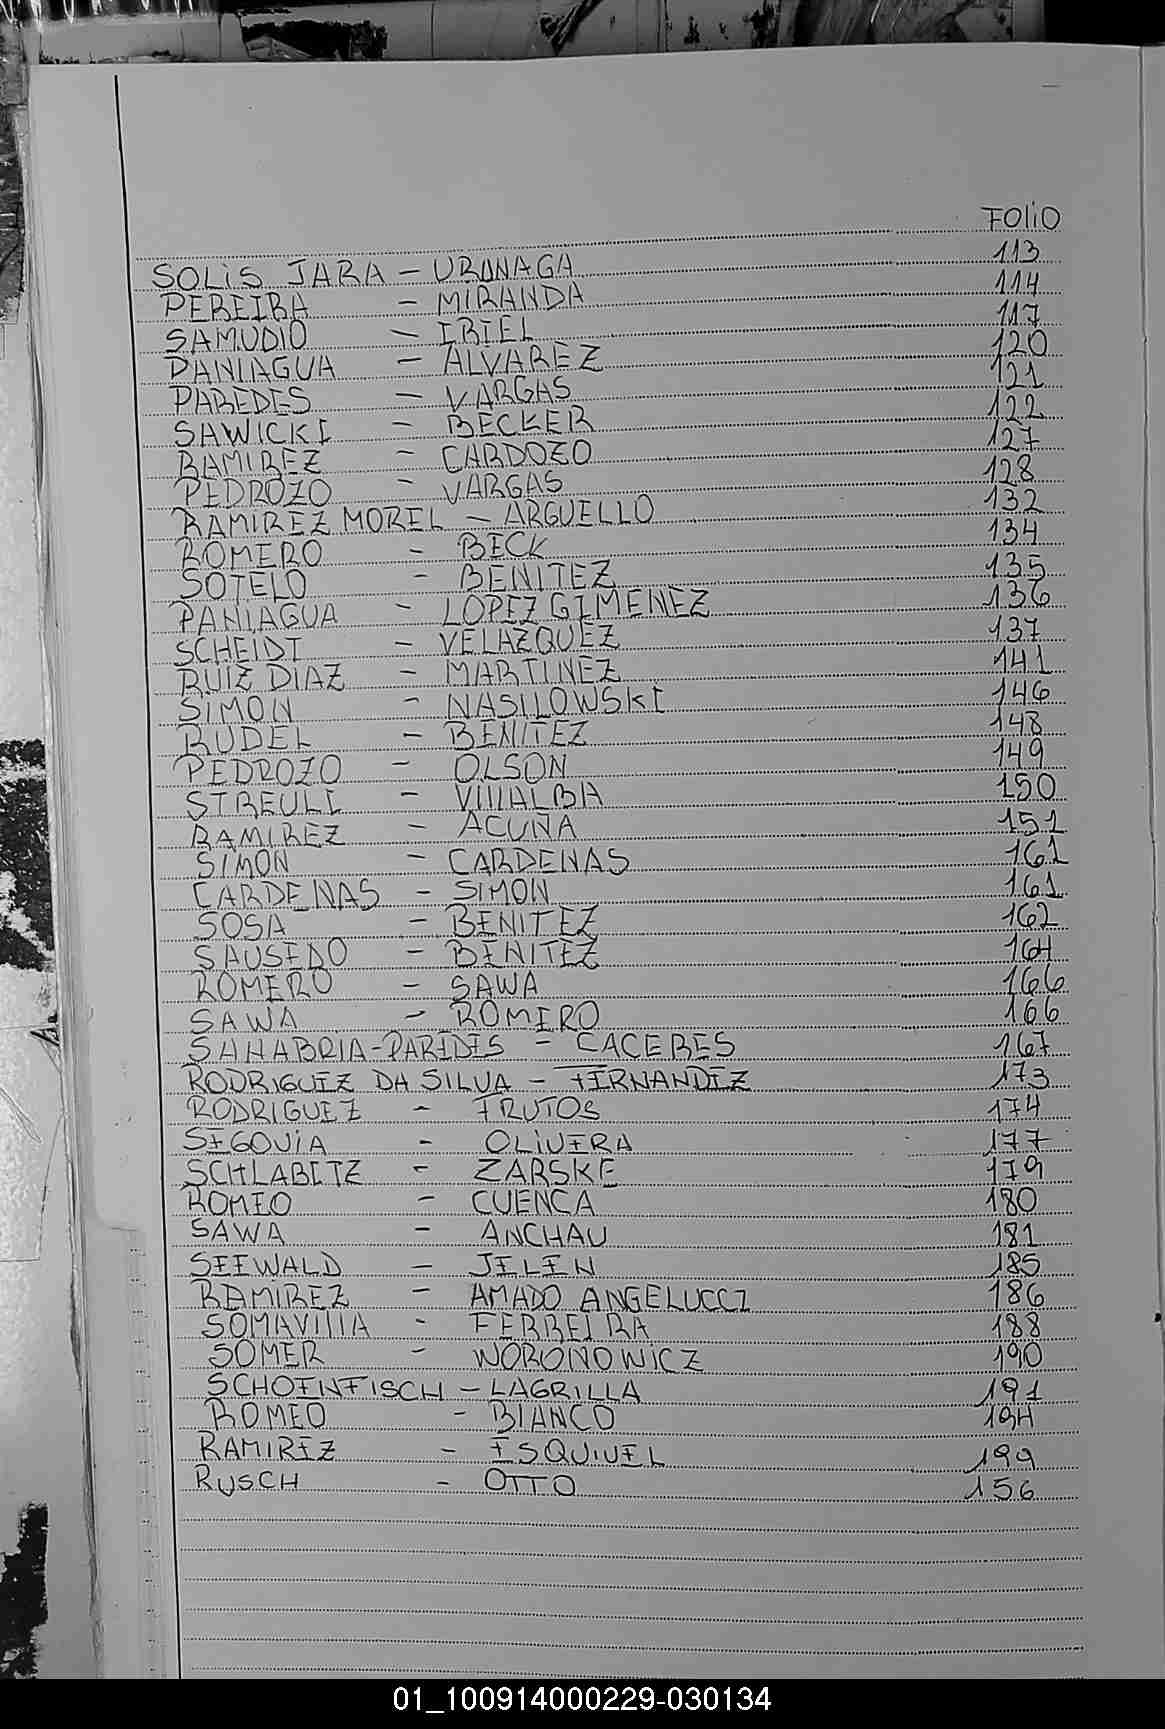 FOLIO
SOLIS JARA - URUNAGA 113
PEREIRA - MIRANDA 114
SAMUDIO - IRIEL 117
PANIAGUA - ALVAREZ 120
PAREDES - VARGAS 121
SAWICKI - BECKER 122
RAMIREZ - CARDOZO 127
PEDROZO - VARGAS 128
RAMIREZ MOREL - ARGUELLO 132
ROMERO - BECK 134
SOTELO - BENITEZ 135
PANIAGUA - LOPEZ GIMENEZ 136
SCHEIDT - VELAZQUEZ 137
RUIZ DIAZ - MARTINEZ 141
SIMON - NASILOWSKI 146
RUDEL - BENITEZ 148
PEDROZO - OLSON 149
STREULI - VILLALBA 150
RAMIREZ - ACUÑA 151
SIMON - CARDENAS 161
CARDENAS - SIMON 161
SOSA - BENITEZ 162
SAUSEDO - BENITEZ 164
ROMERO - SAWA 166
SAWA - ROMERO 166
SANABRIA-PAREDES - CACERES 167
RODRIGUEZ DA SILVA - FERNANDEZ 173
RODRIGUEZ - FRUTOS 174
SEGOVIA - OLIVERA 177
SCHLABITZ - ZARSKE 179
ROMEO - CUENCA 180
SAWA - ANCHAU 181
SEEWALD - JELEN 185
RAMIREZ - AMADO ANGELUCCI 186
SOMAVILLA - FERREIRA 188
SOMER - WORONOWICZ 190
SCHOENFISCH - LAGRILLA 191
ROMEO - BIANCO 194
RAMIREZ - ESQUIVEL 199
RUSCH - OTTO 156
01_100914000229-030134